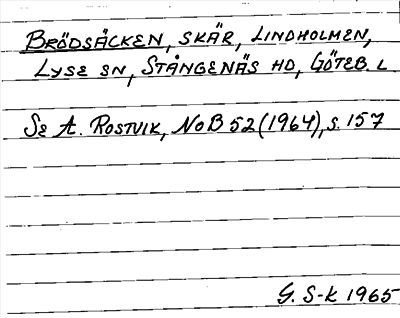 BRÖDSÄCKEN, SKÄR, LINDHOLMEN,
LYSE SN, STÅNGENÄS HD, GÖTEB. L
Se A. ROSTVIK, NoB 52 (1964), s. 157
G. S-K 1965